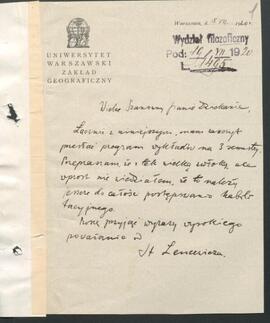 1
Warszawa, d. VII. 1920
UNIWERSYTET
WARSZAWSKI
ZAKŁAD
GEOGRAFICZNY
Wydział filozoficzny
Pod: 10/VII 1920
1495
Wielce Szanowny Panie Dziekanie.
Łącznie z niniejszym, mam zaszczyt
przesłać program wykładów na 3 semestry.
Przepraszam, iż z tak wielką zwłoką, ale
wprost nie wiedziałem, że to należy
jeszcze do całości postępowania habili-
tacyjnego.
Proszę przyjąć wyrazy wysokiego
poważania
St. Lencewicz.